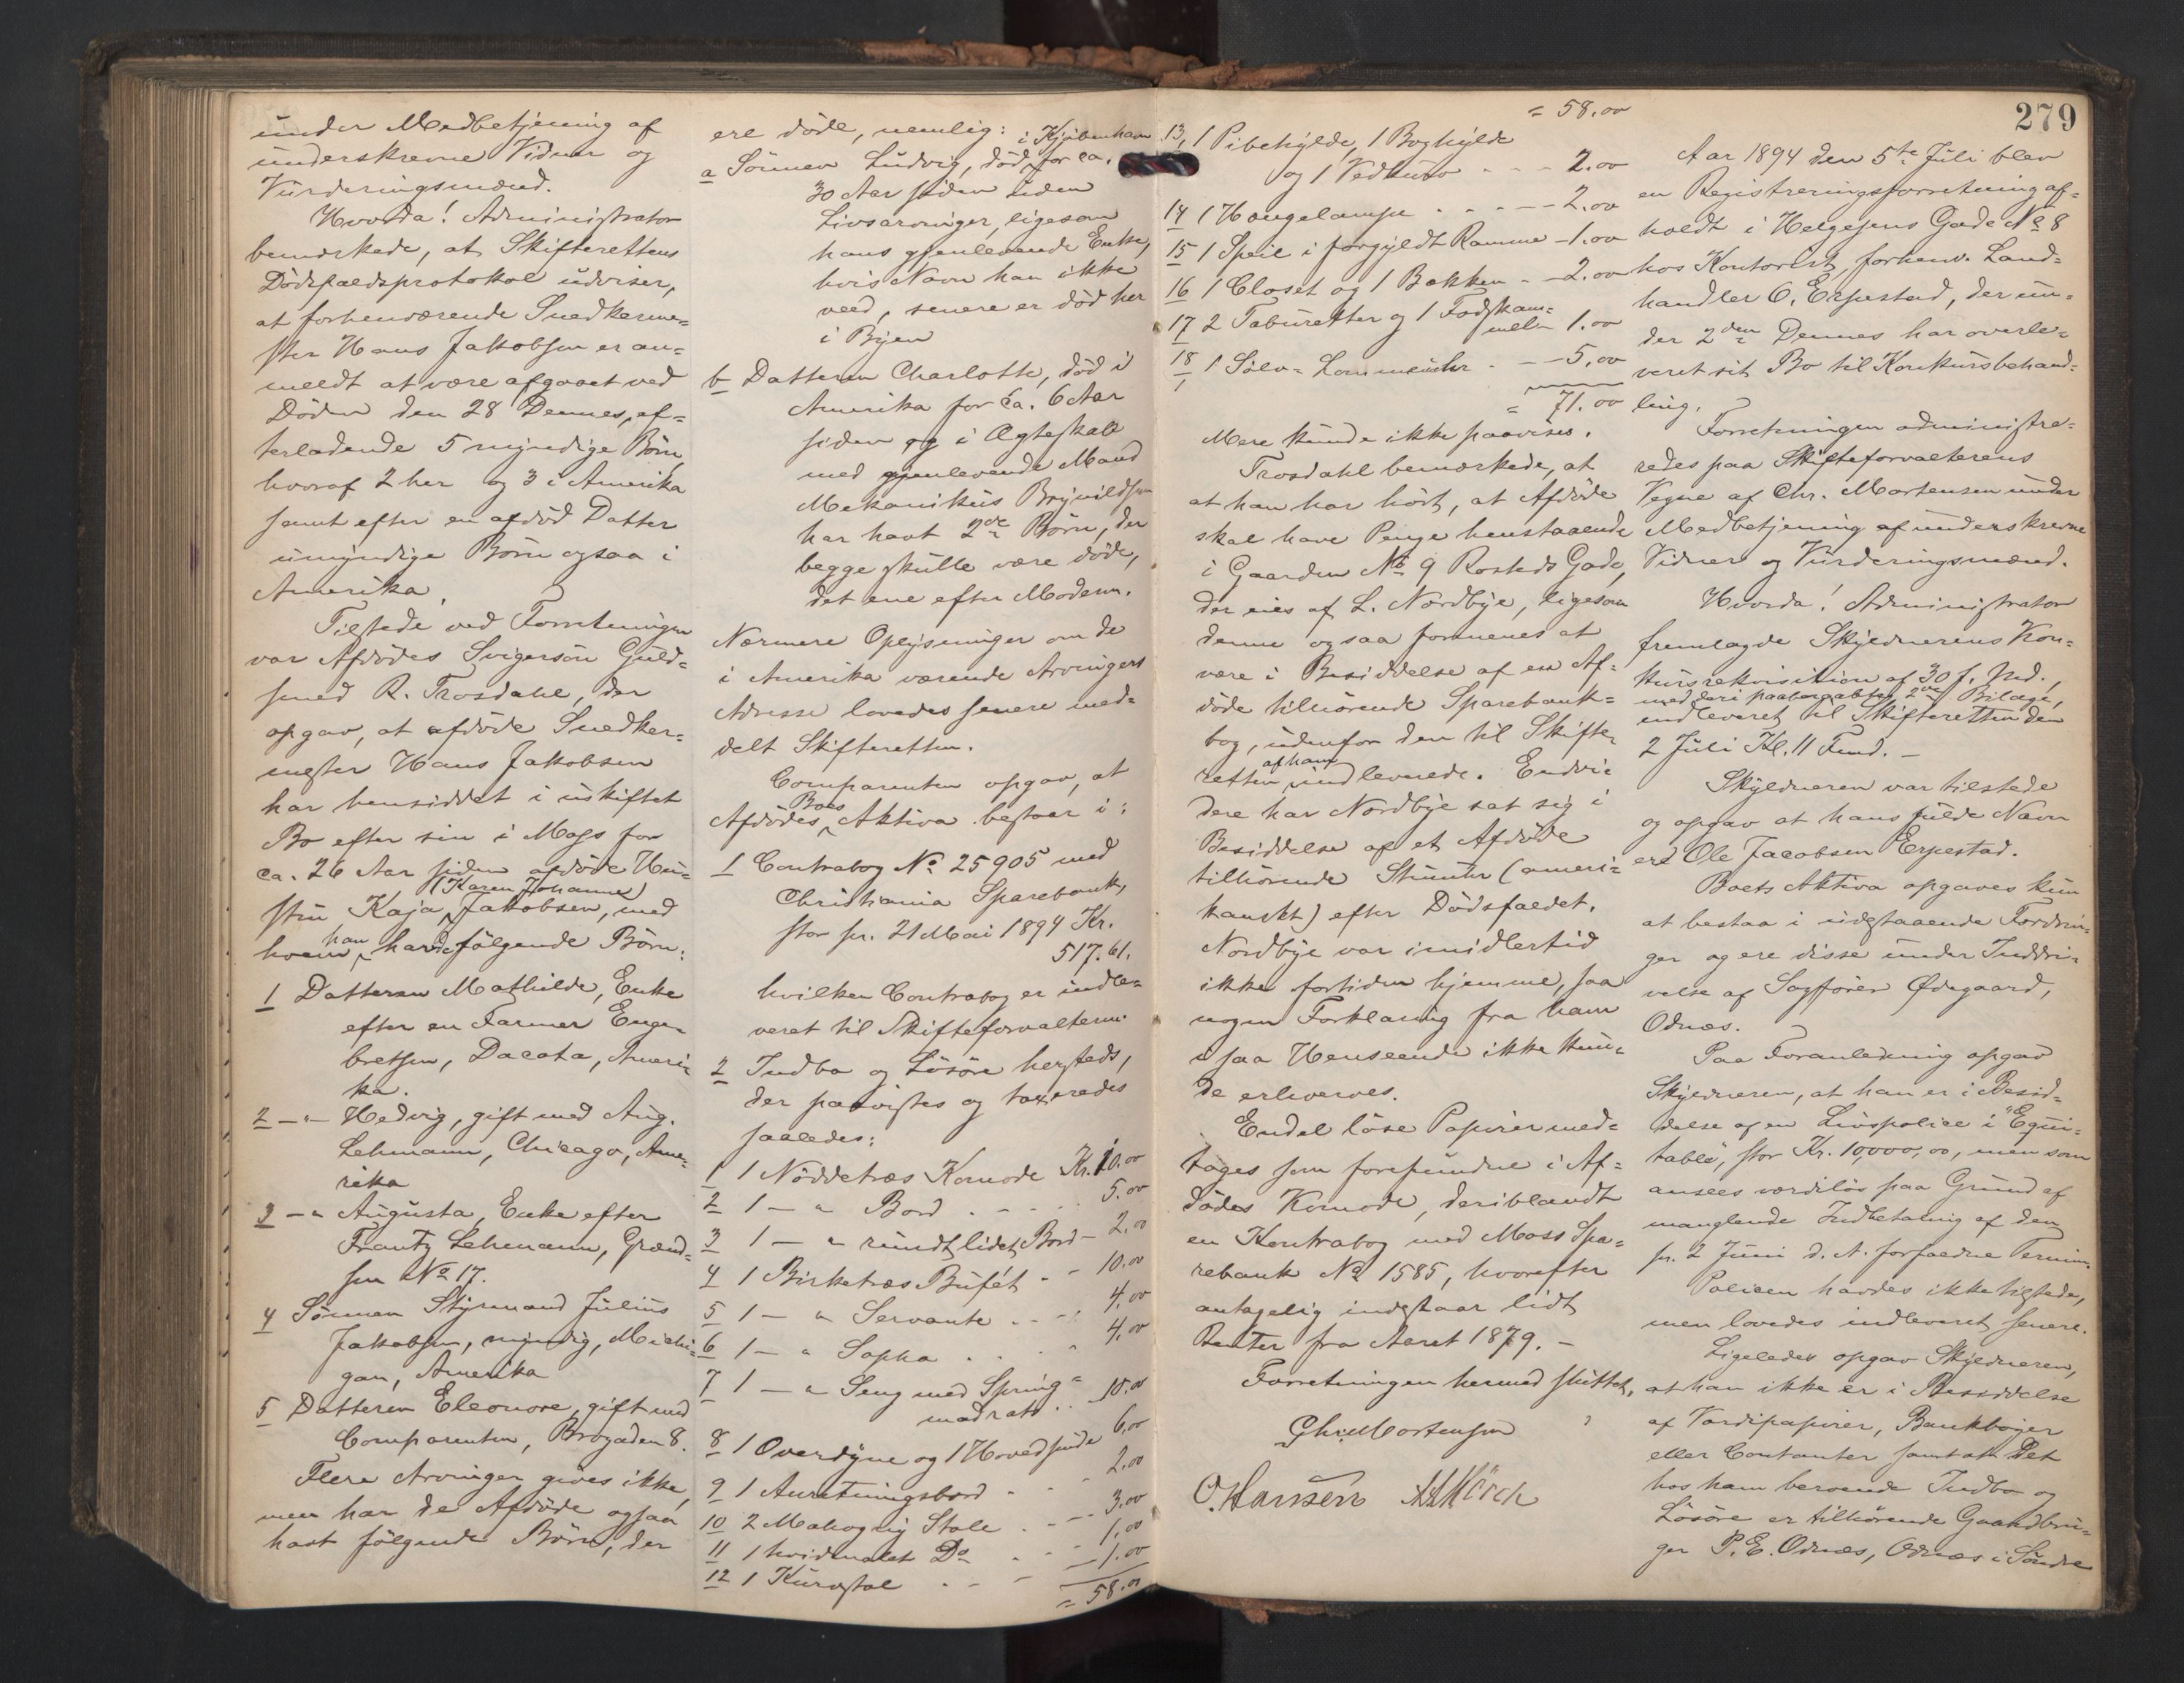 under Medbetjening af
underskrevne Vidner og
Vurderingsmænd.
Hvorda! Administrator
bemærkede, at Skifterettens
Dödsfaldsprotokol udviser,
at forhenværende Snedkerme=
ster Hans Jakobsen er an=
meldt at være afgaaet ved
Döden den 28 Dennes, ef=
terladende 5 myndige Börn,
hvoraf 2 her og 3 i Amerika
samt efter en afdöd Datter
umyndige Börn ogsaa i
Amerika.
Tilstede ved Forretningen
var Afdödes Svigersön Guld=
smed R. Trosdahl, der
opgav, at afdöde Snedker=
mester Hans Jakobsen
har hensiddet i uskiftet
Bo efter sin i Moss for
ca. 26 Aar siden afdöde Hu=
(Karen Johanne)
stru Kaja Jakobsen, med
hvem han havde fölgende Börn:
1 Datteren Mathilde, Enke
efter en Farmer Enge=
bretsen, Dacota, Ameri=
ka.
2 —"— Hedvig, gift med Aug.
Lehmann, Chicago, Ame=
rika
3 —" Augusta, Enke efter
Frantz Lehmann, Grænd=
sen No 17.
4 Sönnen Styrmand Julius
Jakobsen, myndig, Michi=
gan, Amerika
5 Datteren Eleonore, gift med
Comparenten, Brogaden 8.
Flere Arvinger gives ikke,
men har de Afdöde ogsaa
havt fölgende Börn, der
ere döde, nemlig:
a Sönnen Ludvig, död i Kjöbenhavn for ca.
30 Aar siden uden
Livsarvinger, ligesom
hans gjenlevende Enke,
hvis Navn han ikke
veed, senere er död her
i Byen
b Datteren Charlotte, död i
Amerika for ca. 6 Aar
siden og i Ægteskab
med gjenlevende Mand
Mekanikus Brynildsen
har havt 2de Börn, der
begge skulle være döde,
det ene efter Moderen.
Nærmere Oplysninger om de
i Amerika værende Arvingers
Adresse lovedes senere med=
delt Skifteretten.
Comparenten opgav, at
Afdödes Boes Aktiva bestaar i:
1 Contrabog No 25905 med
Christiania Sparebank,
stor pr. 21 Mai 1894 Kr.
517.61.
hvilken Contrabog er indle=
veret til Skifteforvalteren.
2 Indbo og Lösöre hersteds,
der paavistes og taxeredes
saaledes:
1 1 Nöddetræs Komode Kr. 10.00
2 1 —" Bord . . . 5.00
3 1 —" rundt lidet Bord - 2.00
4 1 Birketræs Bufét - - 10.00
5 1 —" Servante . . - 4.00
6 1 —" Sopha . . . 4.00
7 1 —" Seng med Spring=
madrats . . 10.00
8 1 Overdyne og 1 Hovedpude 6.00
9 1 Anretningsbord - - 2.00
10 2 Mahogny Stole . - - 3.00
11 1 hvidmalet Do . - - 1.00
12 1 Kurvstol . - - - 1.00
= 58.00
= 58.00
13, 1 Pibehylde, 1 Boghylde
og 1 Vedkurv - - - 2.00
14 1 Hængelampe . . - - 2.00
15 1 Speil i forgyldt Ramme - 1.00
16 1 Closet og 1 Bækken - - 2.00
17 2 Taburetter og 1 Fodskam=
mel - 1.00
18, 1 Sölv-Lommeuhr . - - 5.00
= 71.00
Mere kunde ikke paavises.
Trosdahl bemærkede, at
at han har hört, at Afdöde
skal have Penge henstaaende
i Gaarden No 9 Rosteds Gade,
der eies af L. Nordbye, ligesom
denne ogsaa formenes at
være i Besiddelse af en Af=
döde tilhörende Sparebank=
bog, udenfor den til Skifte=
retten af ham indleverede. Endvi=
dere har Nordbye sat sig i
Besiddelse af et Afdöde
tilhörende Stueuhr (ameri=
kanskt) efter Dödsfaldet.
Nordbye var imidlertid
ikke fortiden hjemme, saa
nogen Forklaring fra ham
i saa Henseende ikke kun=
de erhverves.
Endel löse Papirer med=
tages som forefundne i Af=
dödes Komode, deriblandt
en Kontrabog med Moss Spa=
rebank No 1585, hvorefter
antagelig indestaar lidt
Renter fra Aaret 1879. -
Forretningen hermed sluttet.
Chr. Mortensen
O. Hansen
279
Aar 1894 den 5te Juli blev
en Registreringsforretning af=
holdt i Helgesens Gade No 8
hos Kontorist, forhenv. Land=
handler O. Erpestad, der un=
der 2den Dennes har overle=
veret sit Bo til Konkursbehand=
ling.
Forretningen administre=
redes paa Skifteforvalterens
Vegne af Chr. Mortensen under
Medbetjening af underskrevne
Vidner og Vurderingsmænd.
Hvorda! Administrator
fremlagde Skyldnerens Kon=
kursrekvisition af 30 f. Md.,
med deri paaberaabte 2de Bilage,
indleveret til Skifteretten den
2 Juli Kl. 11 Fmd. -
Skyldneren var tilstede
og opgav at hans fulde Navn
er Ole Jacobsen Erpestad.
Boets Aktiva opgaves kun
at bestaa i udestaaende Fordrin=
ger og ere disse under Inddri=
velse af Sagförer Ødegaard,
Odnæs.
Paa Foranledning opgav
Skyldneren, at han er i Besid=
delse af en Livspolice i "Equi=
table", stor Kr. 10,000,00, men som
ansees værdilös paa Grund af
manglende Indbetaling af den
pr. 2 Juni d. A. forfaldne Termin.
Policen havdes ikke tilstede,
men lovedes indleveret senere.
Ligeledes opgav Skyldneren,
at han ikke er i Besiddelse
af Værdipapirer, Bankböger
eller Contanter samt at Det
hos ham beroende Indbo og
Lösöre er tilhörende Gaardbru=
ger P. E. Odnæs, Odnæs i Söndre